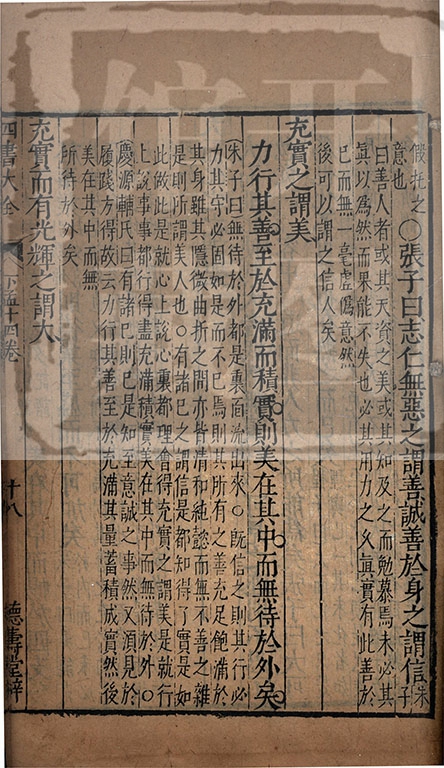 假托之○張子曰志仁無惡之謂善誠善於身之謂信朱子
意也
曰善人者或其天資之美或其知及之而勉慕焉未必其
真以爲然而果能不失也必其用力之久真實有此善於
已而無一毫虛僞意然
後可以謂之信人矣
充實之謂美
力行其善至於充滿而積實則美在其中而無待於外矣
朱子曰無待於外都是裏面流出來○既信之則其行必
力其守必固如是而不已焉則其所有之善充足飽滿於
其身雖其隱微曲折之間亦皆清和純懿而無不善之雜
是則所謂美人也○有諸已之謂信是都知得了實是如
此做此是就心上說心裏都理會得充實之謂美是就行
上說事事都行得盡充滿積實美在其中而無待於外○
慶源輔氏曰有諸已則已是知至意誠之事然又須見於
履踐方得故云力行其善至於充滿其量蓄積成實然後
美在其中而無
所待於外矣
充實而有光輝之謂大
四書大全
下孟十四卷
十八
德壽堂梓